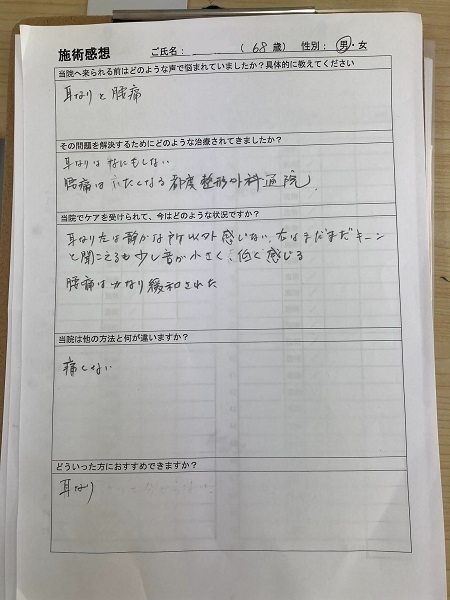 施術感想 ご氏名： (68歳) 性別：男・女
当院へ来られる前はどのような声で悩まれていましたか？具体的に教えてください
耳なりと腰痛
その問題を解決するためにどのような治療されてきましたか？
耳なりはなにもしない
腰痛は いたくなる都度整形外科通院。
当院でケアを受けられて、今はどのような状況ですか？
耳なり左は静かな所以外感じない、右はまだまだキーン
と聞こえるも少し音が小さく、低く感じる
腰痛はかなり緩和された
当院は他の方法と何が違いますか？
痛くない
どういった方におすすめできますか？
耳なり